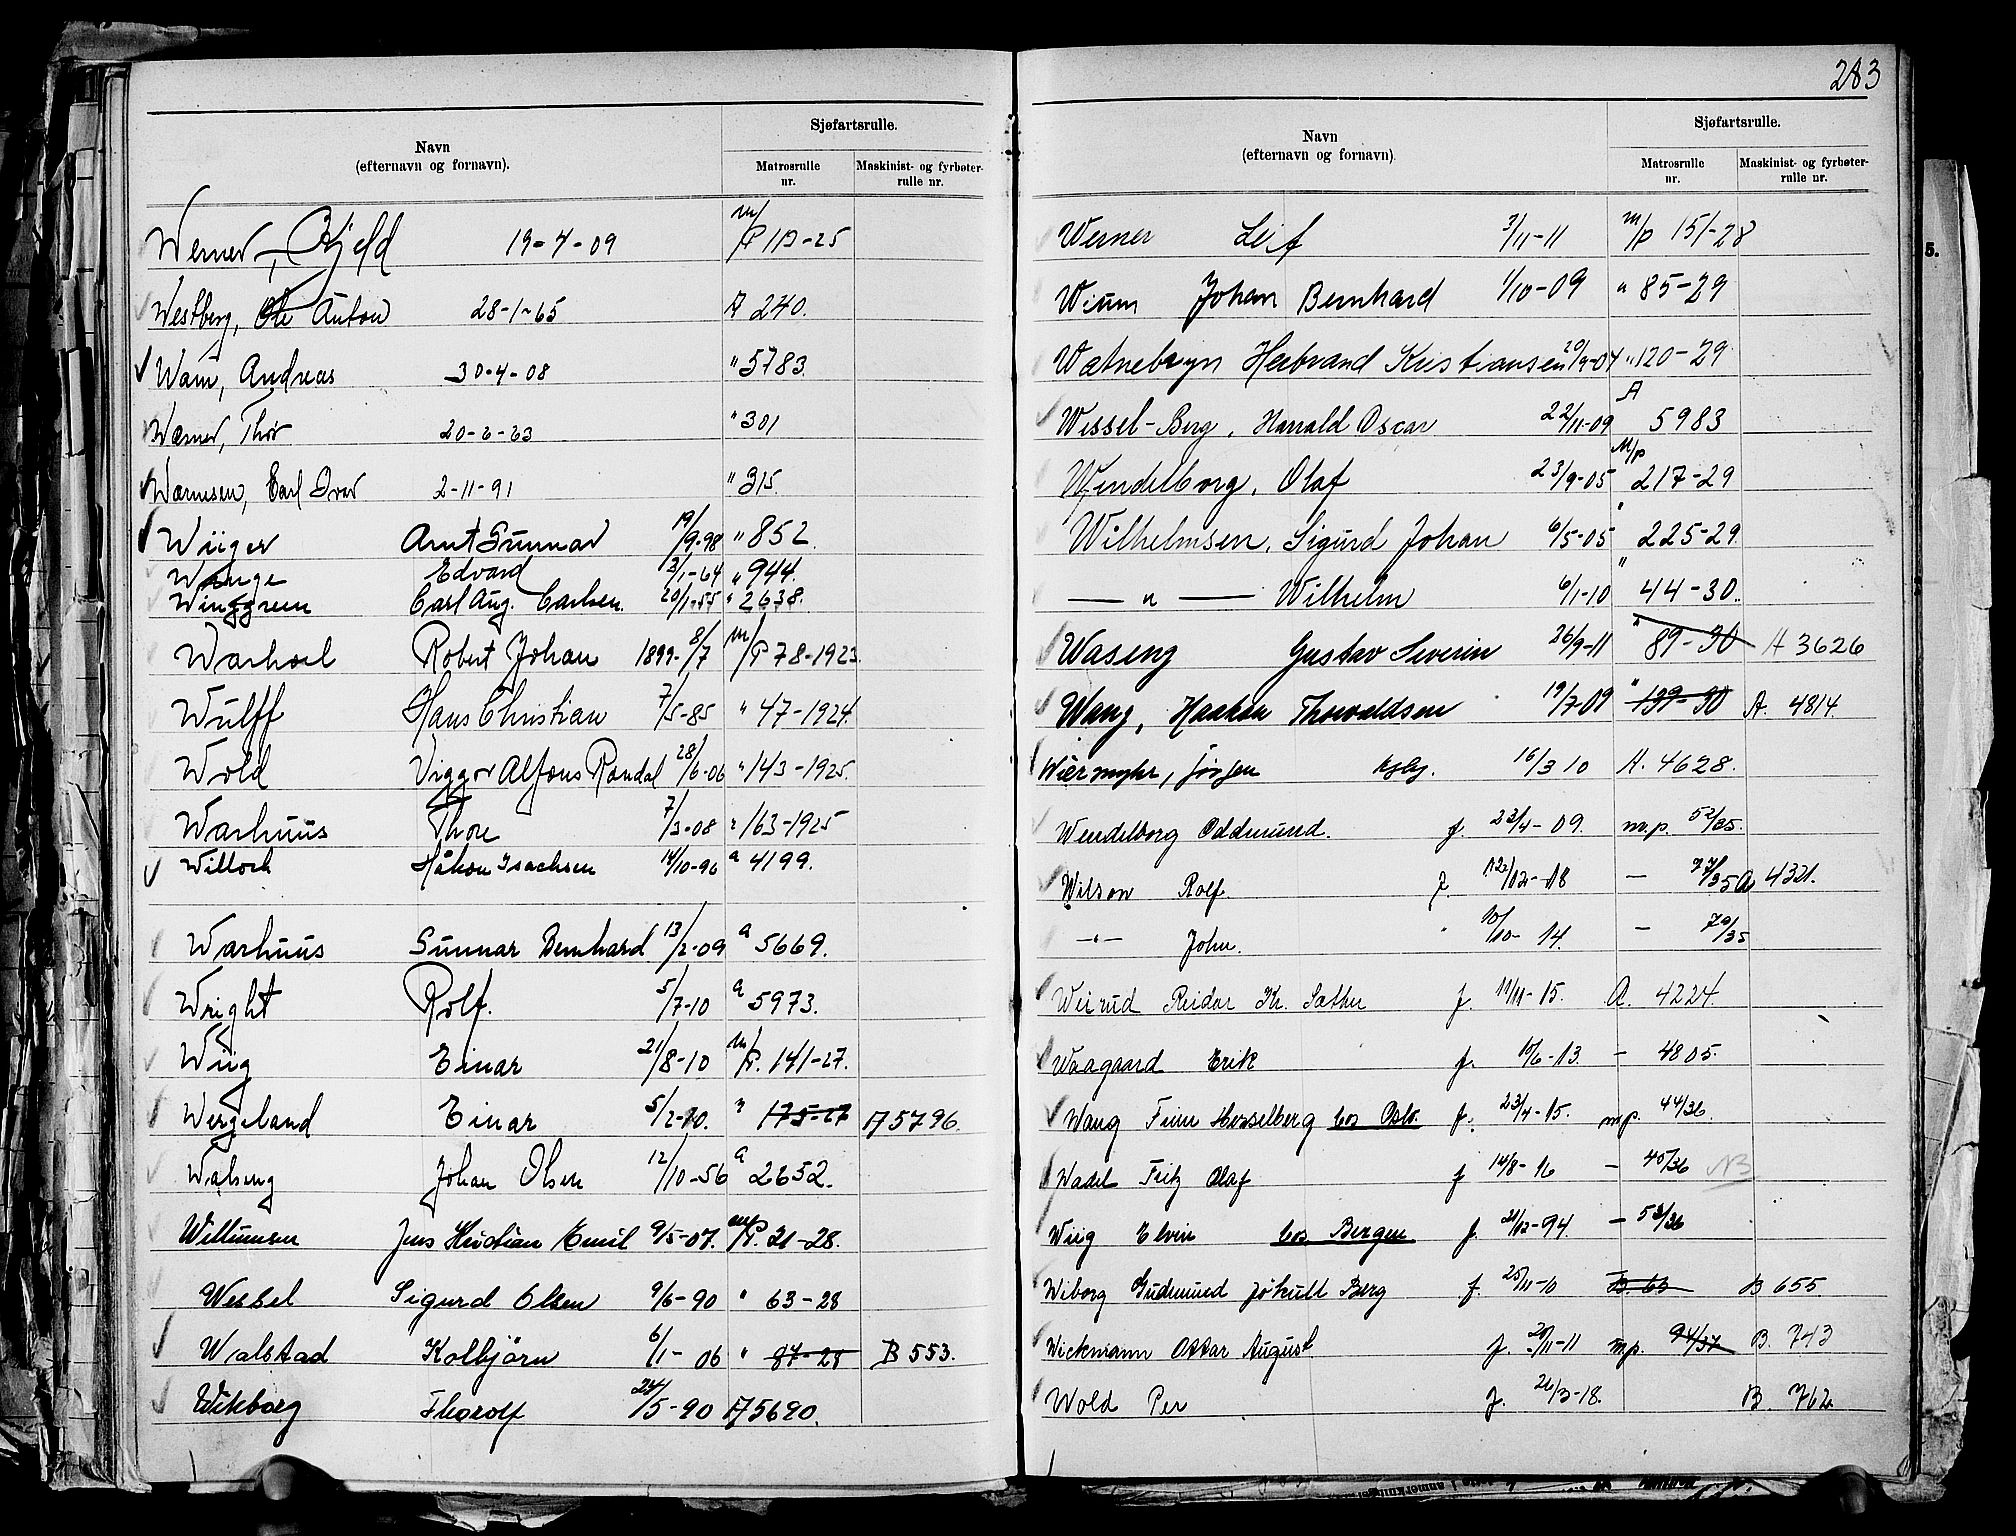 Navn
(efternavn og fornavn).
Sjøfartsrulle.
Matrosrulle nr.
Maskinist- og fyrbøter-rulle nr.
Werner, Kjeld 19-4-09 m/P 119-25
Westberg, Ole Anton 28-1-65 A 240.
Wam, Andreas 30-4-08 " 5783.
Wærner, Thor 20-2-63 " 301
Wærnesen, Carl Iver 2-11-91 " 315.
Wiiger Arnt Gunnar 19/9-98 " 852.
Wange Edvard 2/1-64 " 944.
Winggreen Carl Aug. Carlsen. 20/1-55 " 2638.
Warhoel Robert Johan 1899-8/7 m/P 78-1923.
Wulff Hans Christian 7/5-85 " 47-1924.
Wold Viggo Alfons Randal 28/6-06 " 143-1925.
Warhuus Thore 7/3-08 " 163-1925
Willoch Håkon Isachsen 14/10-96 a 4199.
Warhuus Gunnar Bernhard 13/2-09 a 5669.
Wright Rolf. 5/7-10 a 5973.
Wiig Einar 21/8-10 m/P. 141-27.
Wergeland Einar 5/2-10. " 175-27 A 5796.
Walseng Johan Olsen 12/10-56 a 2652.
Willumsen Jens Kristian Emil 9/5-07. m/P. 21-28.
Wessel Sigurd Olsen 9/6-90 " 63-28
Walstad Kolbjörn 6/1-06 " 87-28 B 553.
Wikborg Thorolf 24/5-90 A 5690.
283
Navn
(efternavn og fornavn).
Sjøfartsrulle.
Matrosrulle nr.
Maskinist- og fyrbøter-rulle nr.
Werner Leif 3/11-11 m/p 151-28
Wium Johan Bernhard 1/10-09 " 85-29
Watnebryn Herbrand Kristiansen 20/9-04 " 120-29
Wessel-Berg, Harrald Oscar 22/11-09 A 5983
Wendelborg, Olaf 23/9-05 M/p 217-29
Wilhelmsen, Sigurd Johan 6/5-05 " 225-29.
— " — Wilhelm 6/1-10 " 44-30.
Waseng Gustav Severin 26/9-11 " 89-30 A 3626
Wang, Haakon Thorvaldsen 19/7-09 " 139-30 A. 4814.
Wiermyhr, Jörgen 16/3 10 A. 4628.
Wendelborg Oddmund. f. 23/4-09. m.p. 52/35.
Wilson Rolf. f. 12/12-18 — 77/35 A 4321.
—"— John. " 10/10-14. — 79/35
Weirud Reidar Kr. Sæther f. 11/11-15. A. 4224.
Waagaard Erik f. 10/6-13. — 4805.
Wang Finn Hesselberg bos Oslo. f. 23/4-15. mp. 44/36.
Wadel Fritz Olaf f 14/8-16 — 45/36 NB
Wiig Elvin bos Bergen f. 21/12-94. — 53/36
Wiborg Gudmund Jökull Berg f. 25/11-10 B. 60 B 655.
Wickmann Ottar August. f. 20/11-11 mp. 94/37 B. 743
Wold Per f. 26/3-18. B. 762